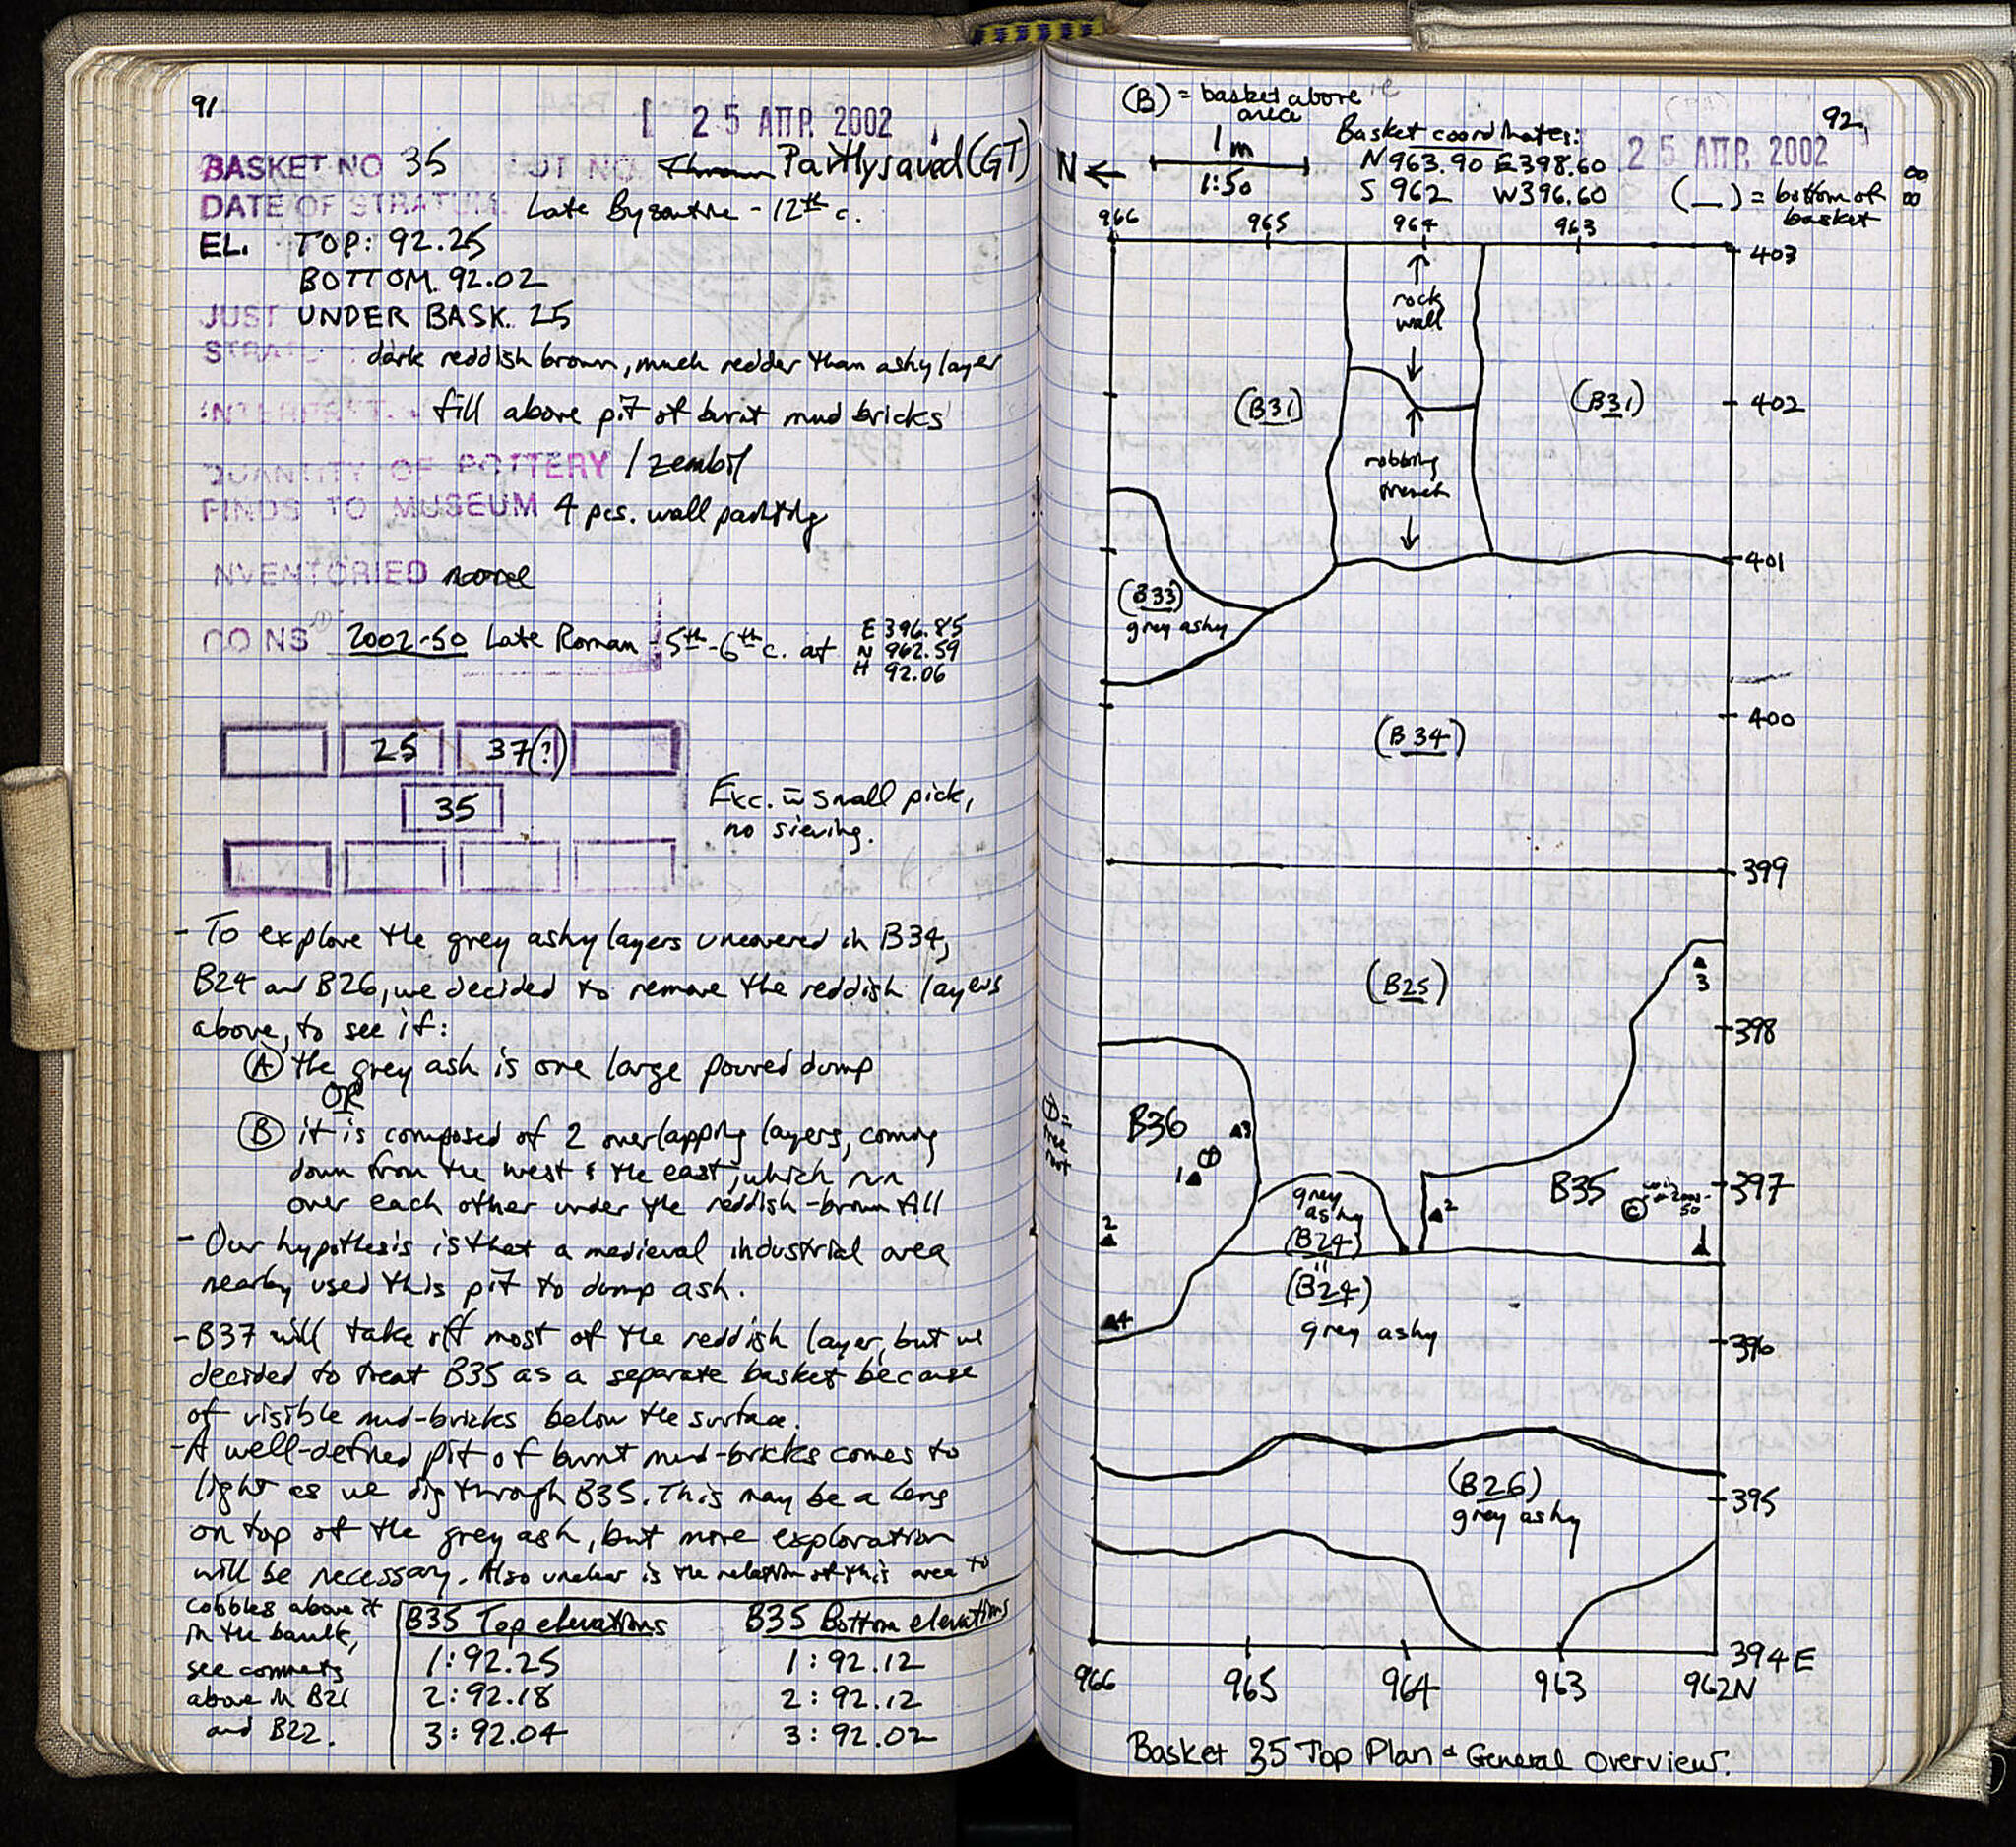 91
25 ΑΠΡ. 2002
BASKET NO 35 LOT NO. Thrown Partly saved (GT)
DATE OF STRATUM Late Byzantine - 12th c.
EL. TOP: 92.25
BOTTOM. 92.02
JUST UNDER BASK. 25
STRAT : dark reddish brown, much redder than ashy layer
INTERPRET. fill above pit of burnt mud bricks
QUANTITY OF POTTERY 1 zembil
FINDS TO MUSEUM 4 pcs. wall painting
INVENTORIED none
COINS 2002-50 Late Roman 5th-6th c. at E 396.85
N 962.59
H 92.06
25 37(?)
35
Exc. w̄ small pick,
no sieving.
- To explore the grey ashy layers uncovered in B34,
B24 and B26, we decided to remove the reddish layers
above, to see if:
Ⓐ the grey ash is one large poured dump
OR
Ⓑ it is composed of 2 overlapping layers, coming
down from the west & the east, which run
over each other under the reddish-brown fill
- Our hypothesis is that a medieval industrial area
nearby used this pit to dump ash.
- B37 will take off most of the reddish layer, but we
decided to treat B35 as a separate basket because
of visible mud-bricks below the surface.
- A well-defined pit of burnt mud-bricks comes to
light as we dig through B35. This may be a lens
on top of the grey ash, but more exploration
will be necessary. Also unclear is the relation of this area to
cobbles above it
in the baulk,
see comments
above in B21
and B22.
B35 Top elevations
1: 92.25
2: 92.18
3: 92.04
B35 Bottom elevations
1: 92.12
2: 92.12
3: 92.02
(B) = basket above
area
92
25 ΑΠΡ. 2002
N ←
1 m
1:50
Basket coordinates:
N 963.90 E 398.60
S 962 W 396.60
(_) = bottom of
basket
966 965 964 963
403
rock
wall
(B31)
(B31)
402
robbing
trench
401
(B33)
grey ashy
400
(B34)
399
(B25)
3
398
⏀ =
tree
root
B36
3
1
2
4
grey
ashy
(B24)
2
B35
© coin
2002-
50
1
397
"
(B24)
grey ashy
396
(B26)
grey ashy
395
394 E
966 965 964 963 962N
Basket 35 Top Plan & General Overview.